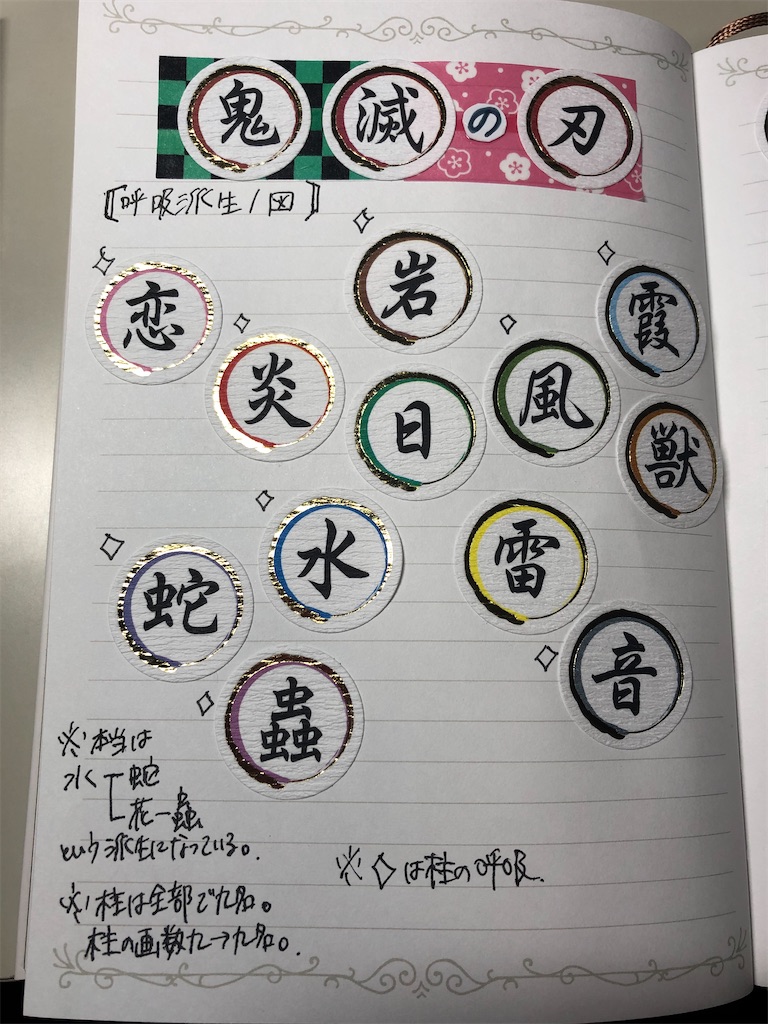 鬼滅の刃
〖呼吸派生ノ図〗
恋
岩
霞
炎
風
日
獣
水
雷
蛇
音
蟲
※本当は
水 蛇
花ー蟲
という派生になっている。
※◇は柱の呼吸.
※柱は全部で九名。
柱の画数九→九名。